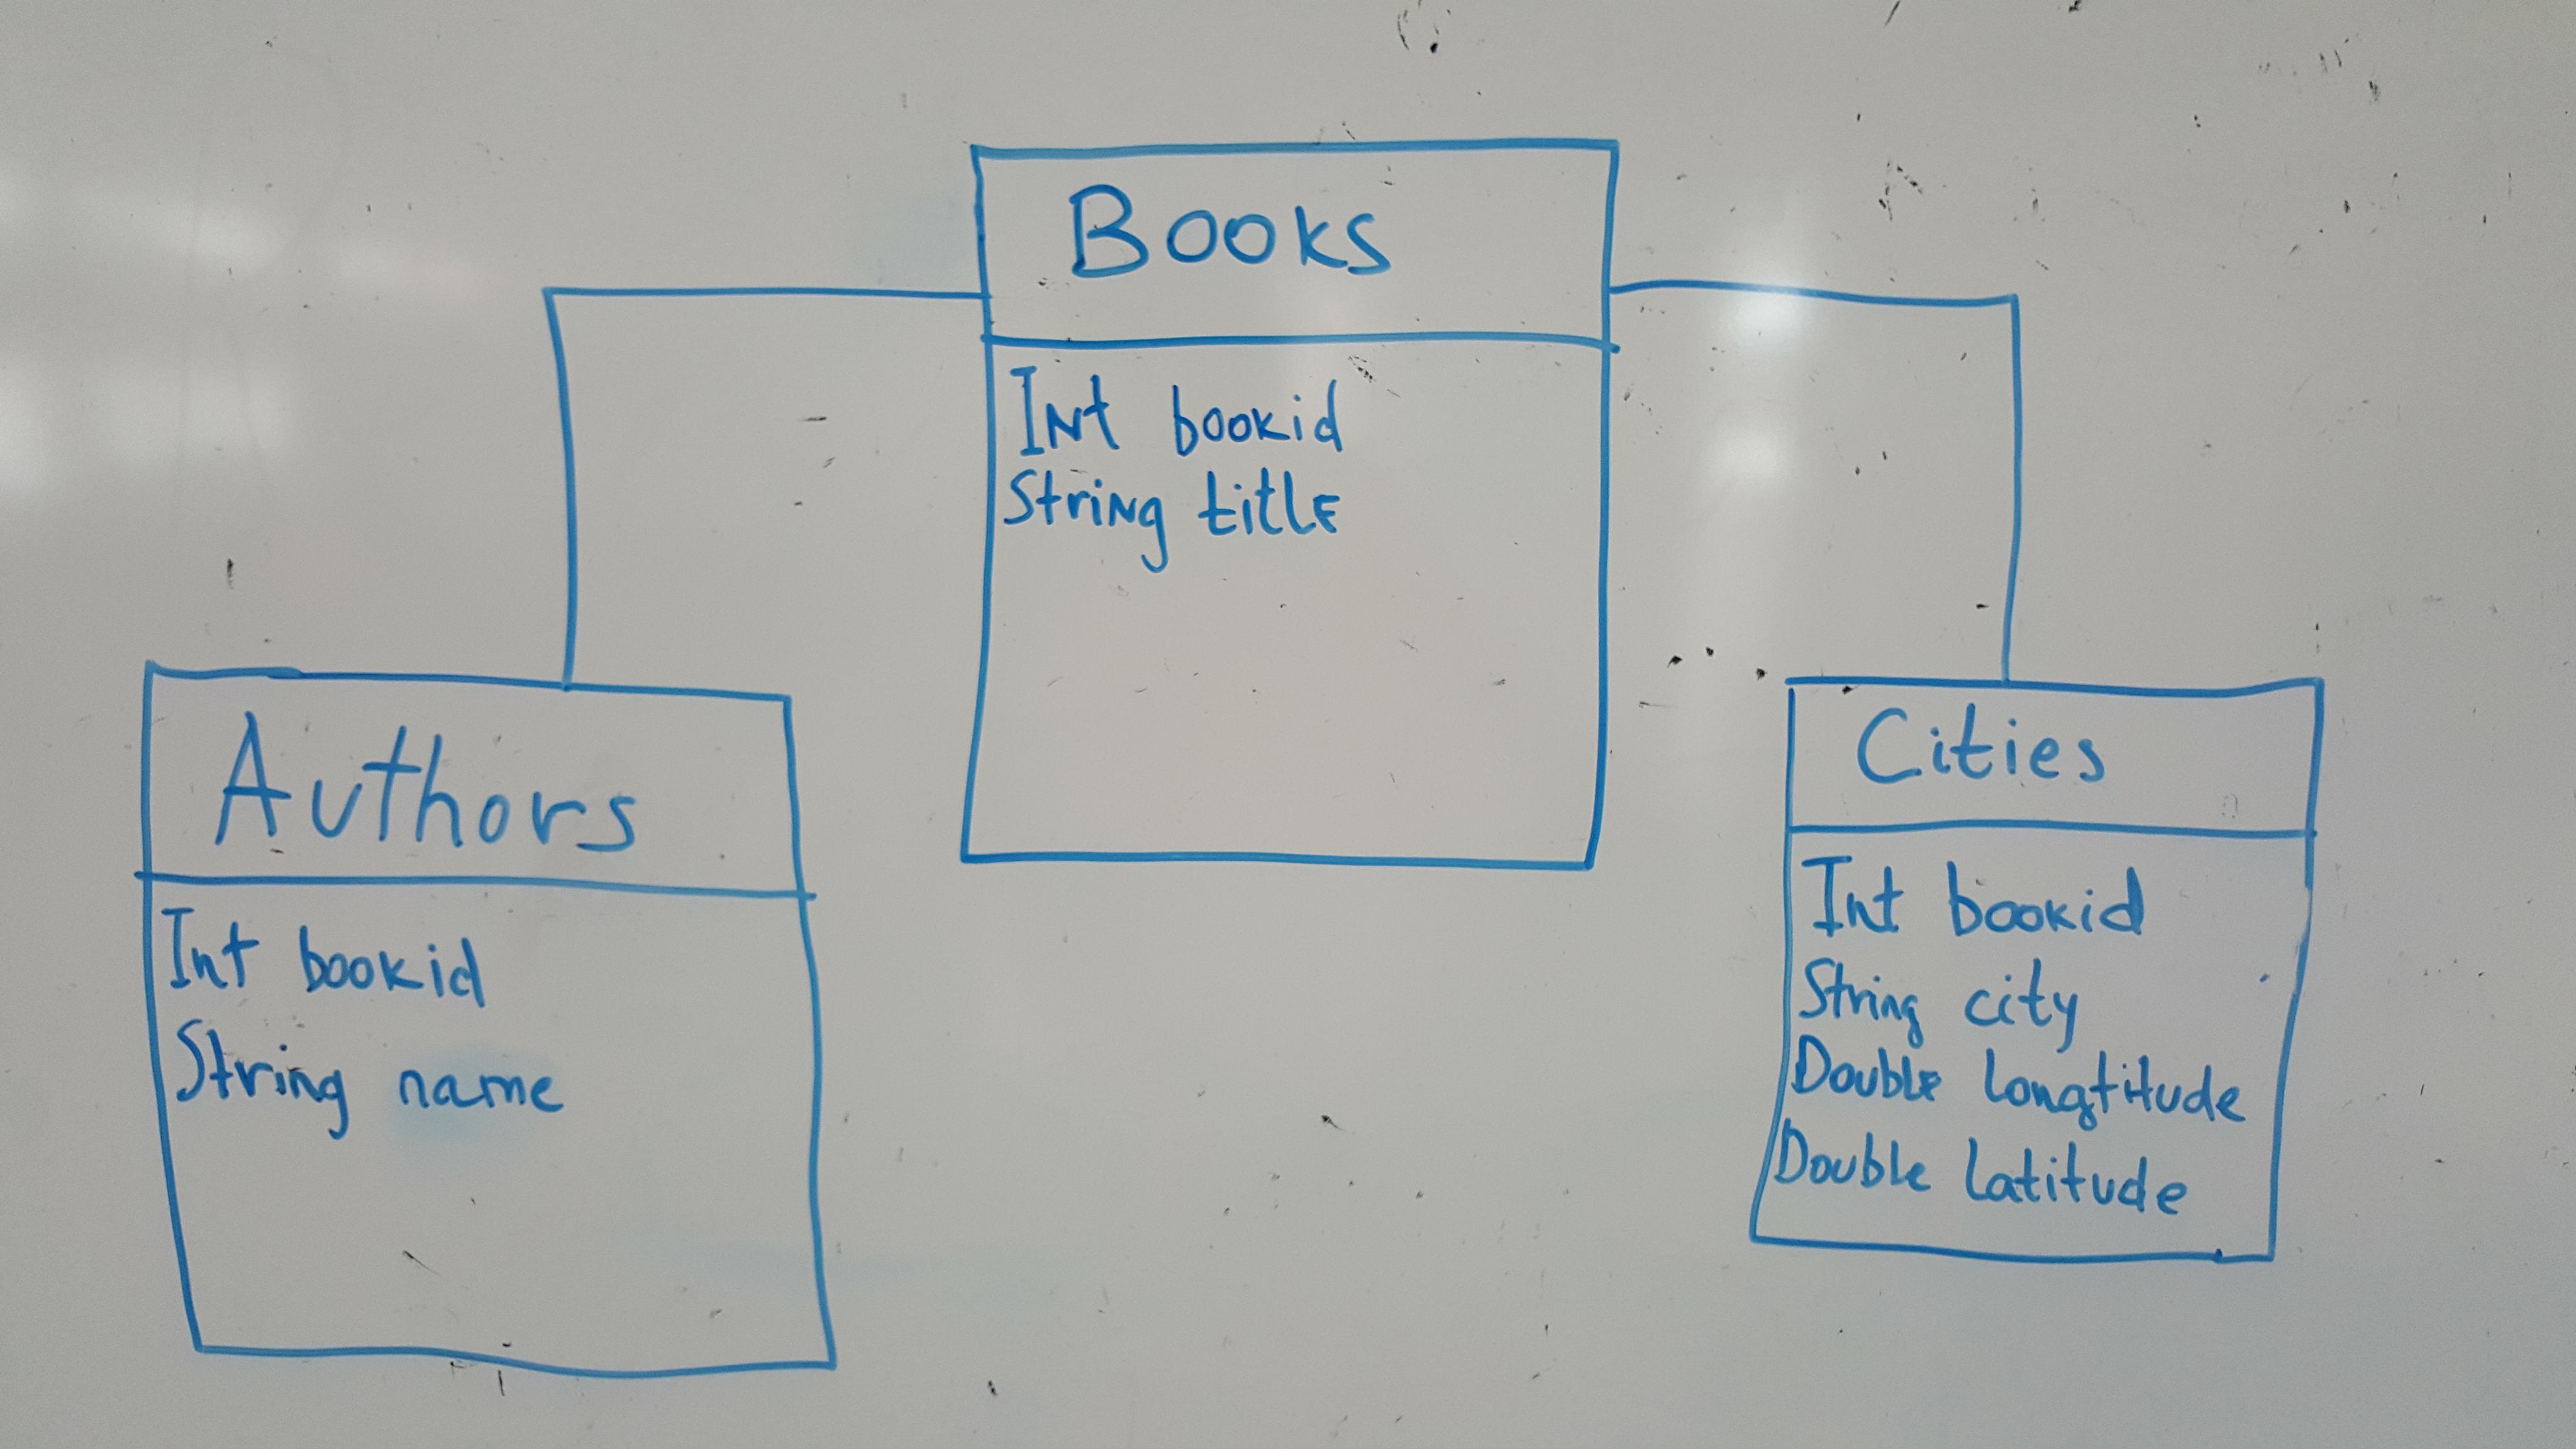 Books
Int bookid
String title
Authors
Int bookid
String name
Cities
Int bookid
String city
Double longtitude
Double latitude